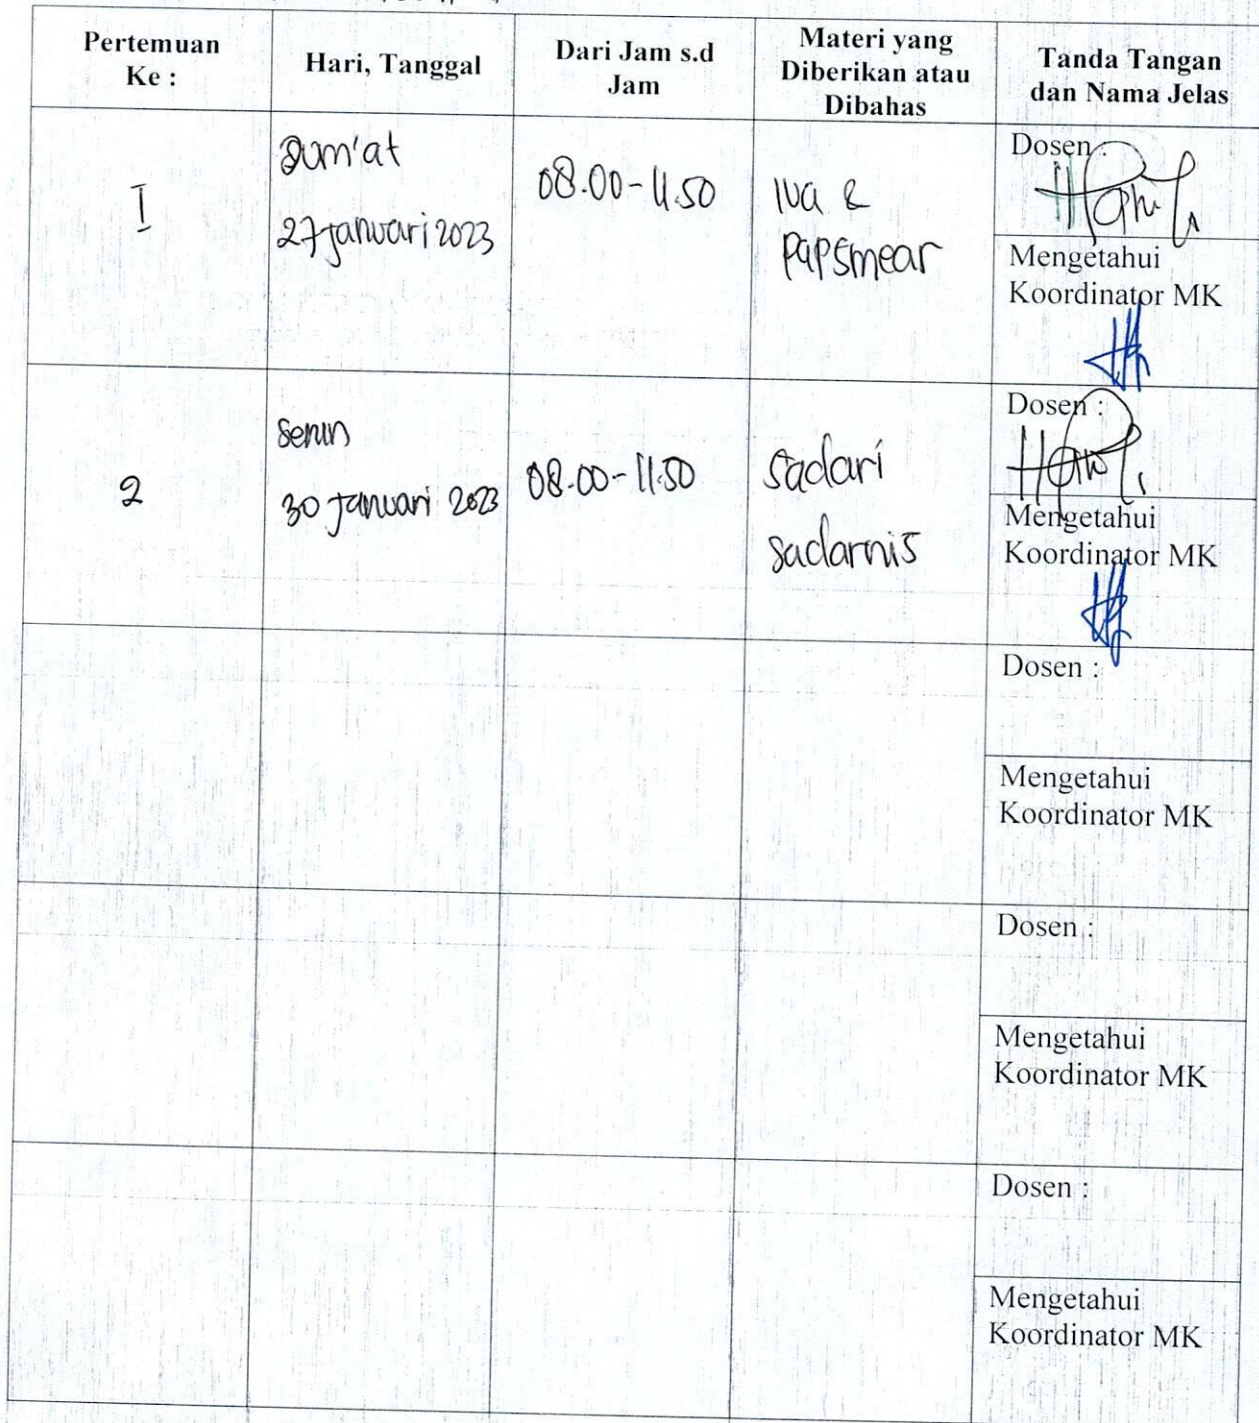 Pertemuan
Ke :
Hari, Tanggal
Dari Jam s.d
Jam
Materi yang
Diberikan atau
Dibahas
Tanda Tangan
dan Nama Jelas
I
Jum'at
27 Januari 2023
08.00-11.50
IVa &
PapSmear
Dosen :
Mengetahui
Koordinator MK
2
Senin
30 Januari 2023
08.00-11.50
Sadari
Sadarnis
Dosen :
Mengetahui
Koordinator MK
Dosen :
Mengetahui
Koordinator MK
Dosen :
Mengetahui
Koordinator MK
Dosen :
Mengetahui
Koordinator MK